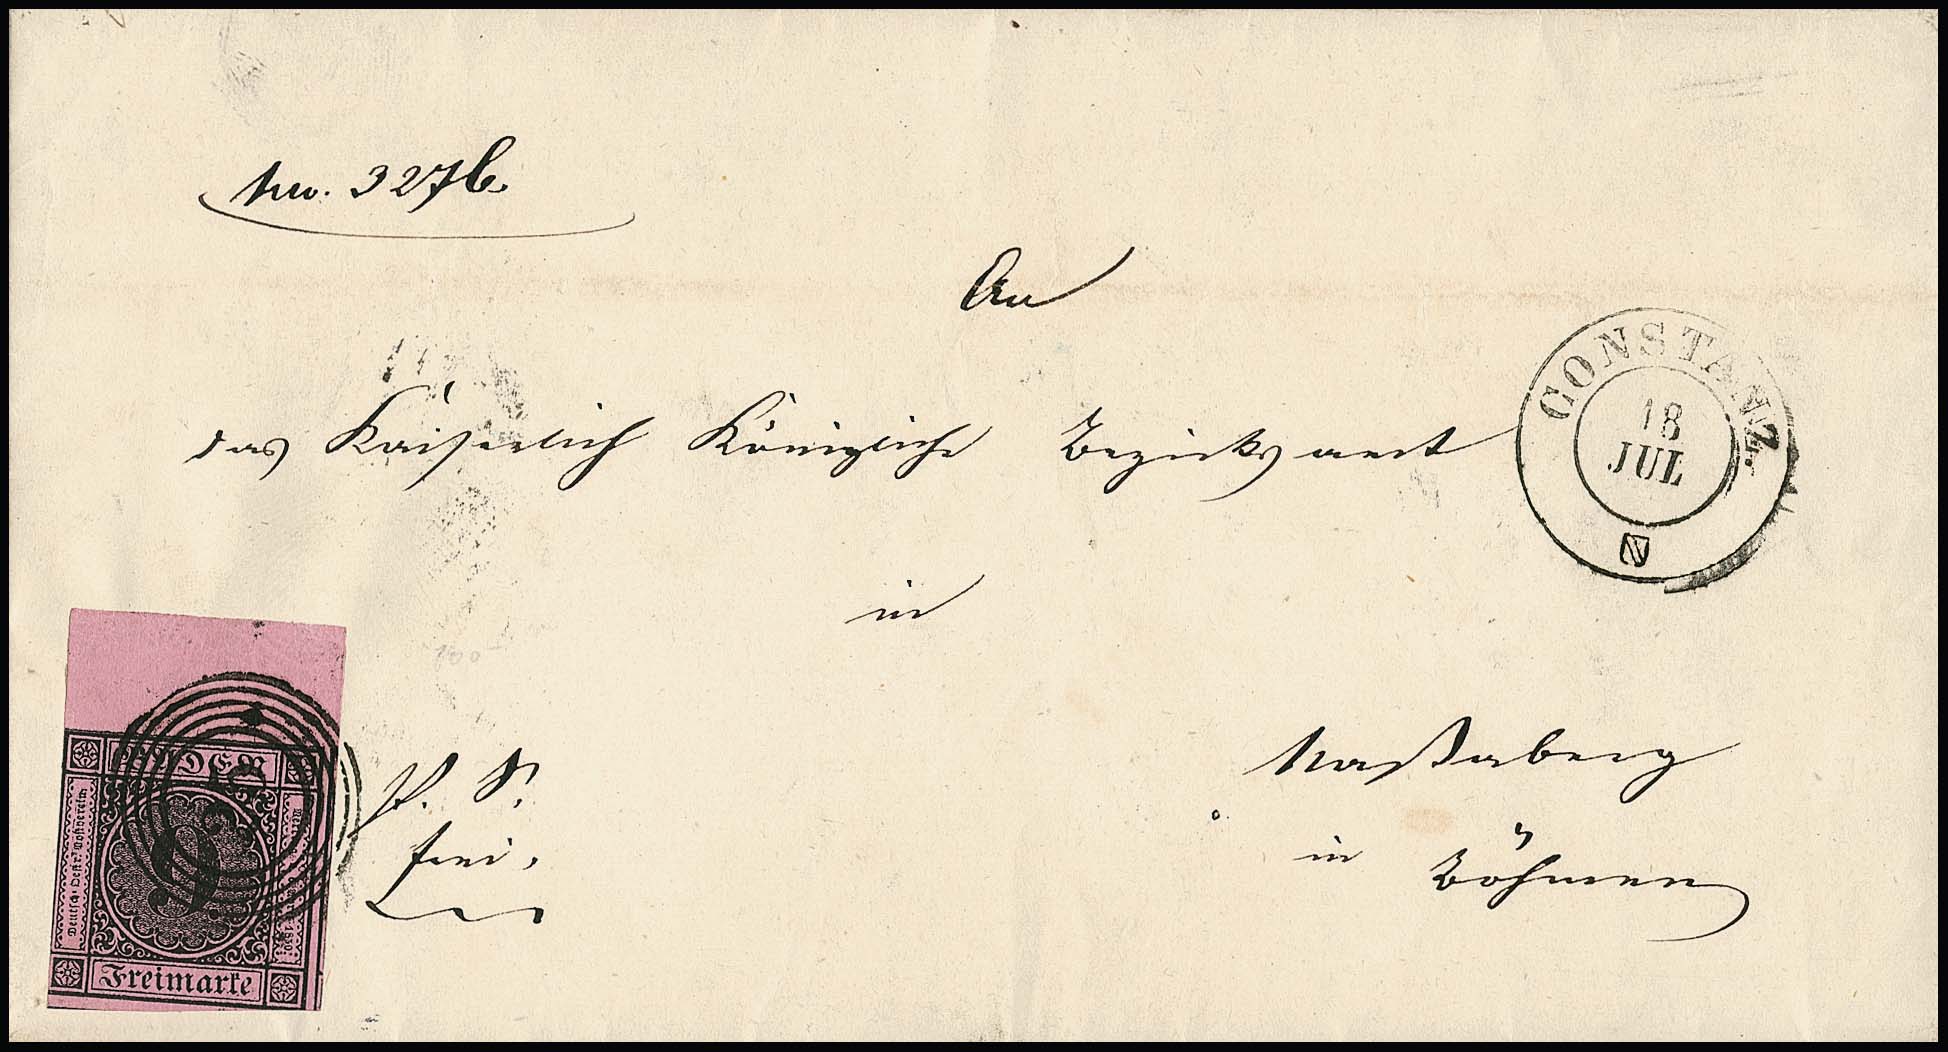 Nro. 3276.
An
das Kaiserlich Königliche Bezirksamt
in
Naßaberg
in Böhmen
CONSTANZ.
18
JUL
P. S.
frei.
BADEN
Deutsch-Oestr. Postverein
9
Freimarke